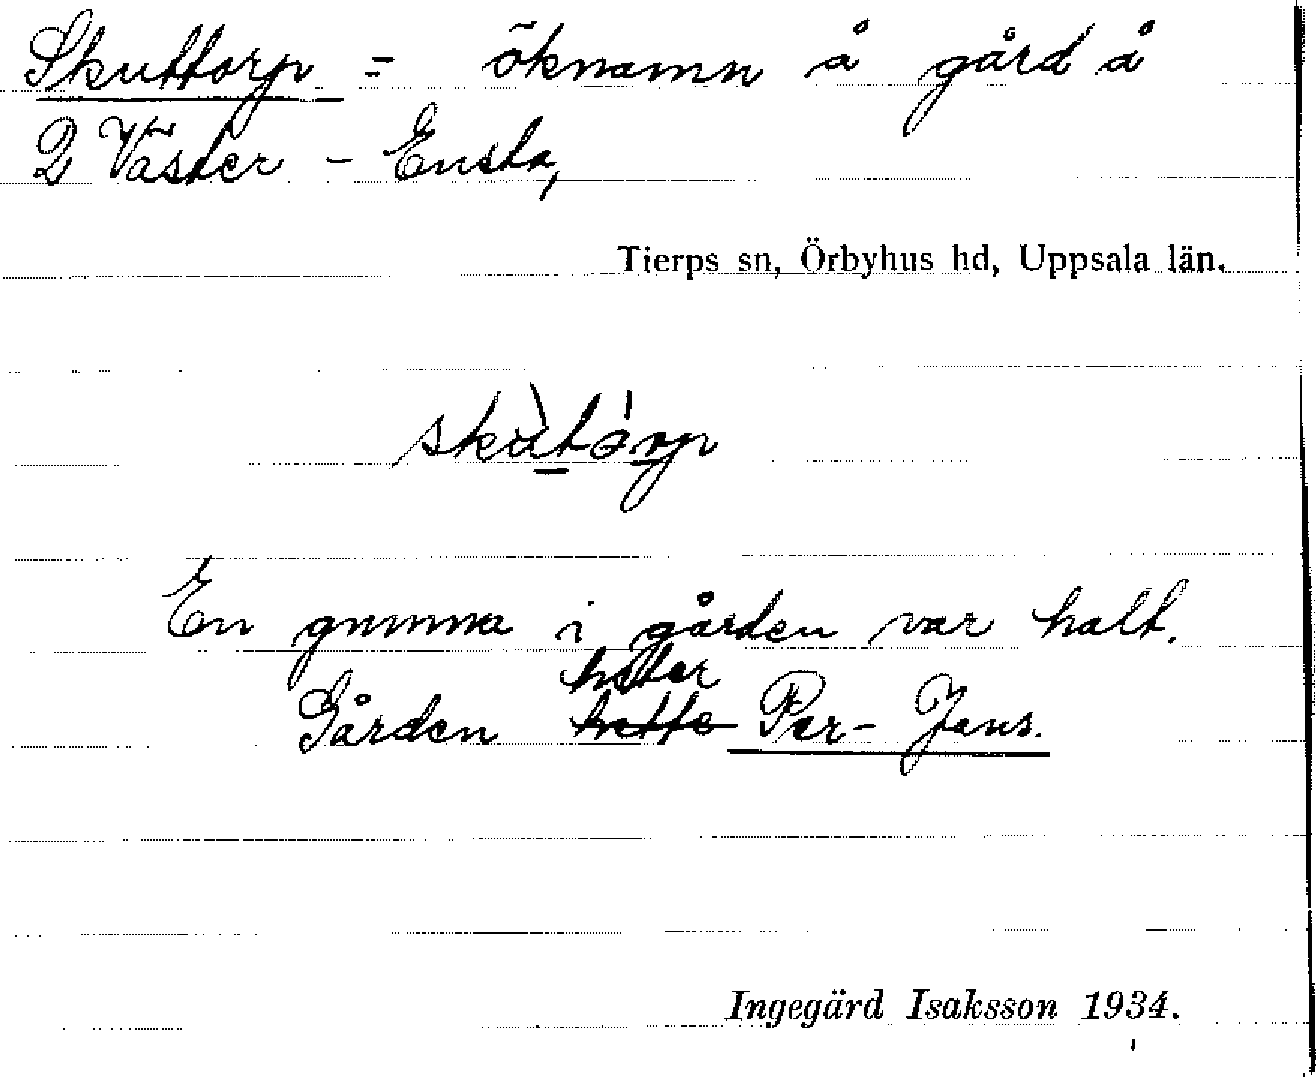 Skuttorp = öknamn å gård å
2 Väster - Ensta,
Tierps sn, Örbyhus hd, Uppsala län.
skùtórp
En gumma i gården var halt.
heter
Gården hette Per- Jans.
Ingegärd Isaksson 1934.